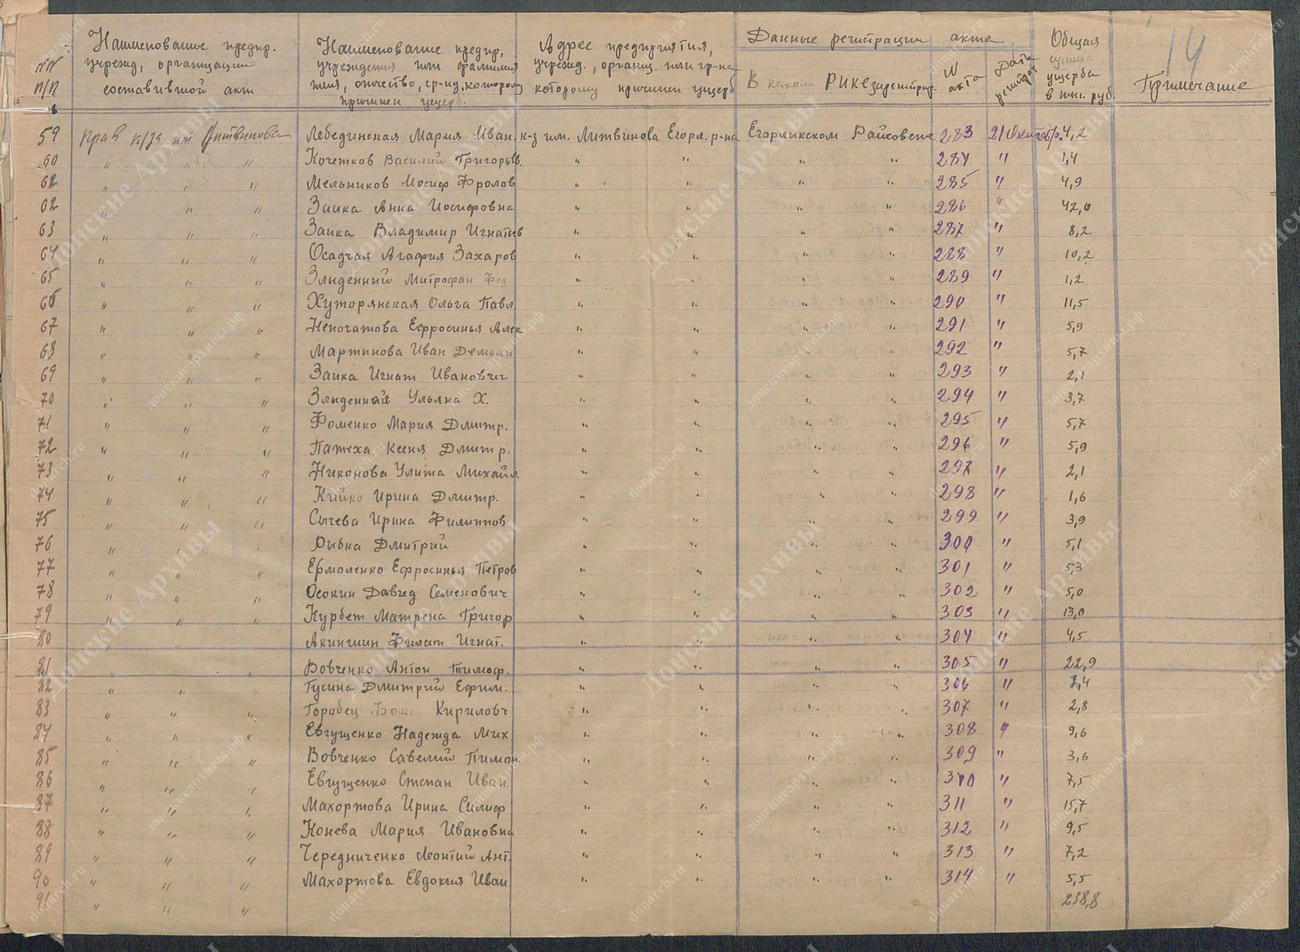 14
№№ п/п
Наименование предпр. учрежд, организации составившей акт
Наименование предпр, учреждения или фамилия имя, отчество, гр-на, которому причинен ущерб.
Адрес предприятия, учрежд., организ. или гр-на которому причинен ущерб
Данные регистрации акта
В каком РИКе зарегистрир.
N акта
Дата регистр
Общая сумма ущерба в тыс. руб.
Примечание
59 Прав к/за им Литвинова Лебединская Мария Иван. к-з им. Литвинова Егорл. р-на Егорликском Райсовете 283 21 Октябр. 4,2
60 " " " Кочетков Василий Григорьев. " " " " 284 " 1,4
61 " " " Мельников Иосиф Фролов " " " " 285 " 4,9
62 " " " Заика Анна Иосифовна " " " " 286 " 42,0
63 " " " Заика Владимир Игнатьев " " " " 287 " 8,2
64 " " " Осадчая Агафия Захаров " " " " 288 " 10,2
65 " " " Злыденний Митрофан Фед " " " " 289 " 1,2
66 " " " Хуторянская Ольга Павл. " " " " 290 " 11,5
67 " " " Непочатова Ефросинья Алек " " " " 291 " 5,9
68 " " " Мартинова Иван Демьян " " " " 292 " 5,7
69 " " " Заика Игнат Иванович " " " " 293 " 2,1
70 " " " Злыденная Ульяна Х. " " " " 294 " 3,7
71 " " " Фоменко Мария Дмитр. " " " " 295 " 5,7
72 " " " Патеха Ксеня Дмитр. " " " " 296 " 5,9
73 " " " Никонова Улита Михайл. " " " " 297 " 2,1
74 " " " Кийко Ирина Дмитр. " " " " 298 " 1,6
75 " " " Сычева Ирина Филиппов " " " " 299 " 3,9
76 " " " Рыбка Дмитрий " " " " 300 " 5,1
77 " " " Ермоленко Ефросинья Петров " " " " 301 " 5,3
78 " " " Осокин Давид Семенович " " " " 302 " 5,0
79 " " " Курбет Матрена Григор " " " " 303 " 13,0
80 " " " Акиншин Филат Игнат. " " " " 304 " 4,5
81 " " " Вовченко Антон Тимоф. " " " " 305 " 22,9
82 " " " Гусина Дмитрий Ефим. " " " " 306 " 1,4
83 " " " Горобец Кирилович " " " " 307 " 2,8
84 " " " Евгущенко Надежда Мих " " " " 308 " 9,6
85 " " " Вовченко Савелий Тимон. " " " " 309 " 3,6
86 " " " Евгущенко Степан Иван " " " " 310 " 7,5
87 " " " Махортова Ирина Силиф " " " " 311 " 15,7
88 " " " Конева Мария Ивановна " " " " 312 " 9,5
89 " " " Чередниченко Леонтий Ант. " " " " 313 " 7,2
90 " " " Махортова Евдокия Иван " " " " 314 " 5,5
91 " " " 238,8